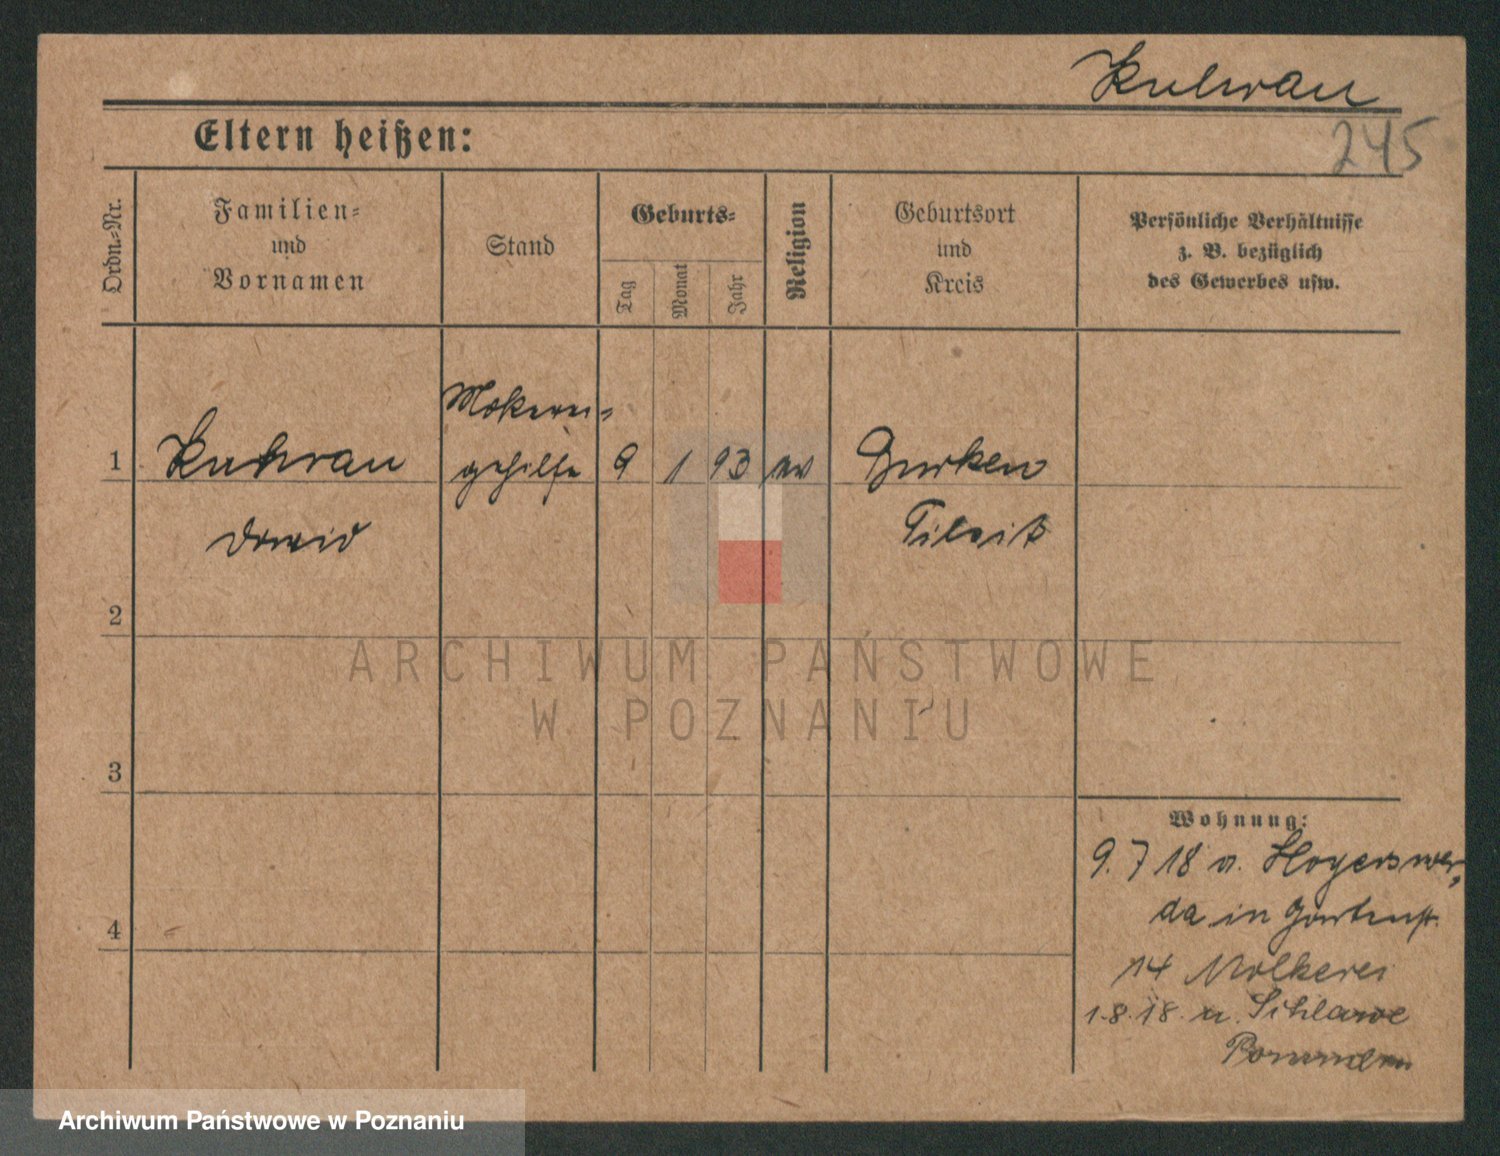 Kuhrau
245
Eltern heißen:
Ordn.-Nr.
Familien-
und
Vornamen
Stand
Geburts-
Tag
Monat
Jahr
Religion
Geburtsort
und
Kreis
Persönliche Verhältnisse
z. B. bezüglich
des Gewerbes usw.
1 Kuhrau
gehilfe 9 1 93 ev
David
Tilsit
2
3
4
ARCHIWUM PAŃSTWOWE
W POZNANIU
Wohnung:
9. 7 18 a. Hoyerswer,
da in Gartenst.
14 Molkerei
1.8.18. a. Schlawe
Pommern
Archiwum Państwowe w Poznaniu